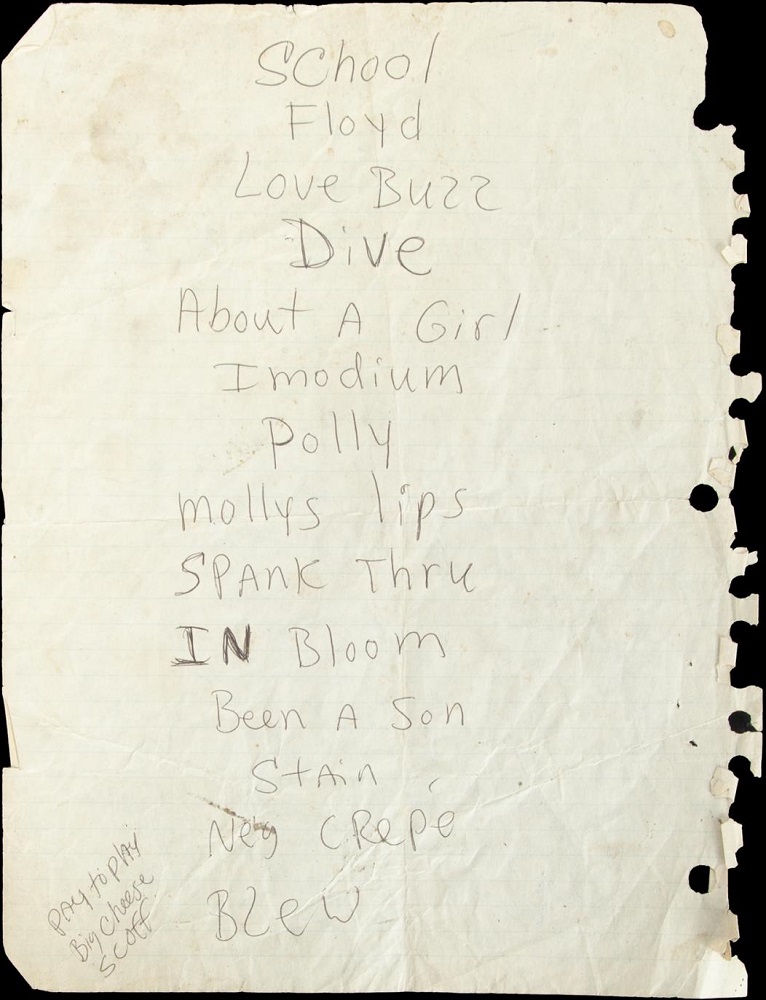 SChool
Floyd
Love Buzz
Dive
About A Girl
Imodium
Polly
mollys lips
SPANK Thru
IN Bloom
Been A Son
StAin
Neg CRepé
Blew
PAY to plAY
Big Cheese
Scoff